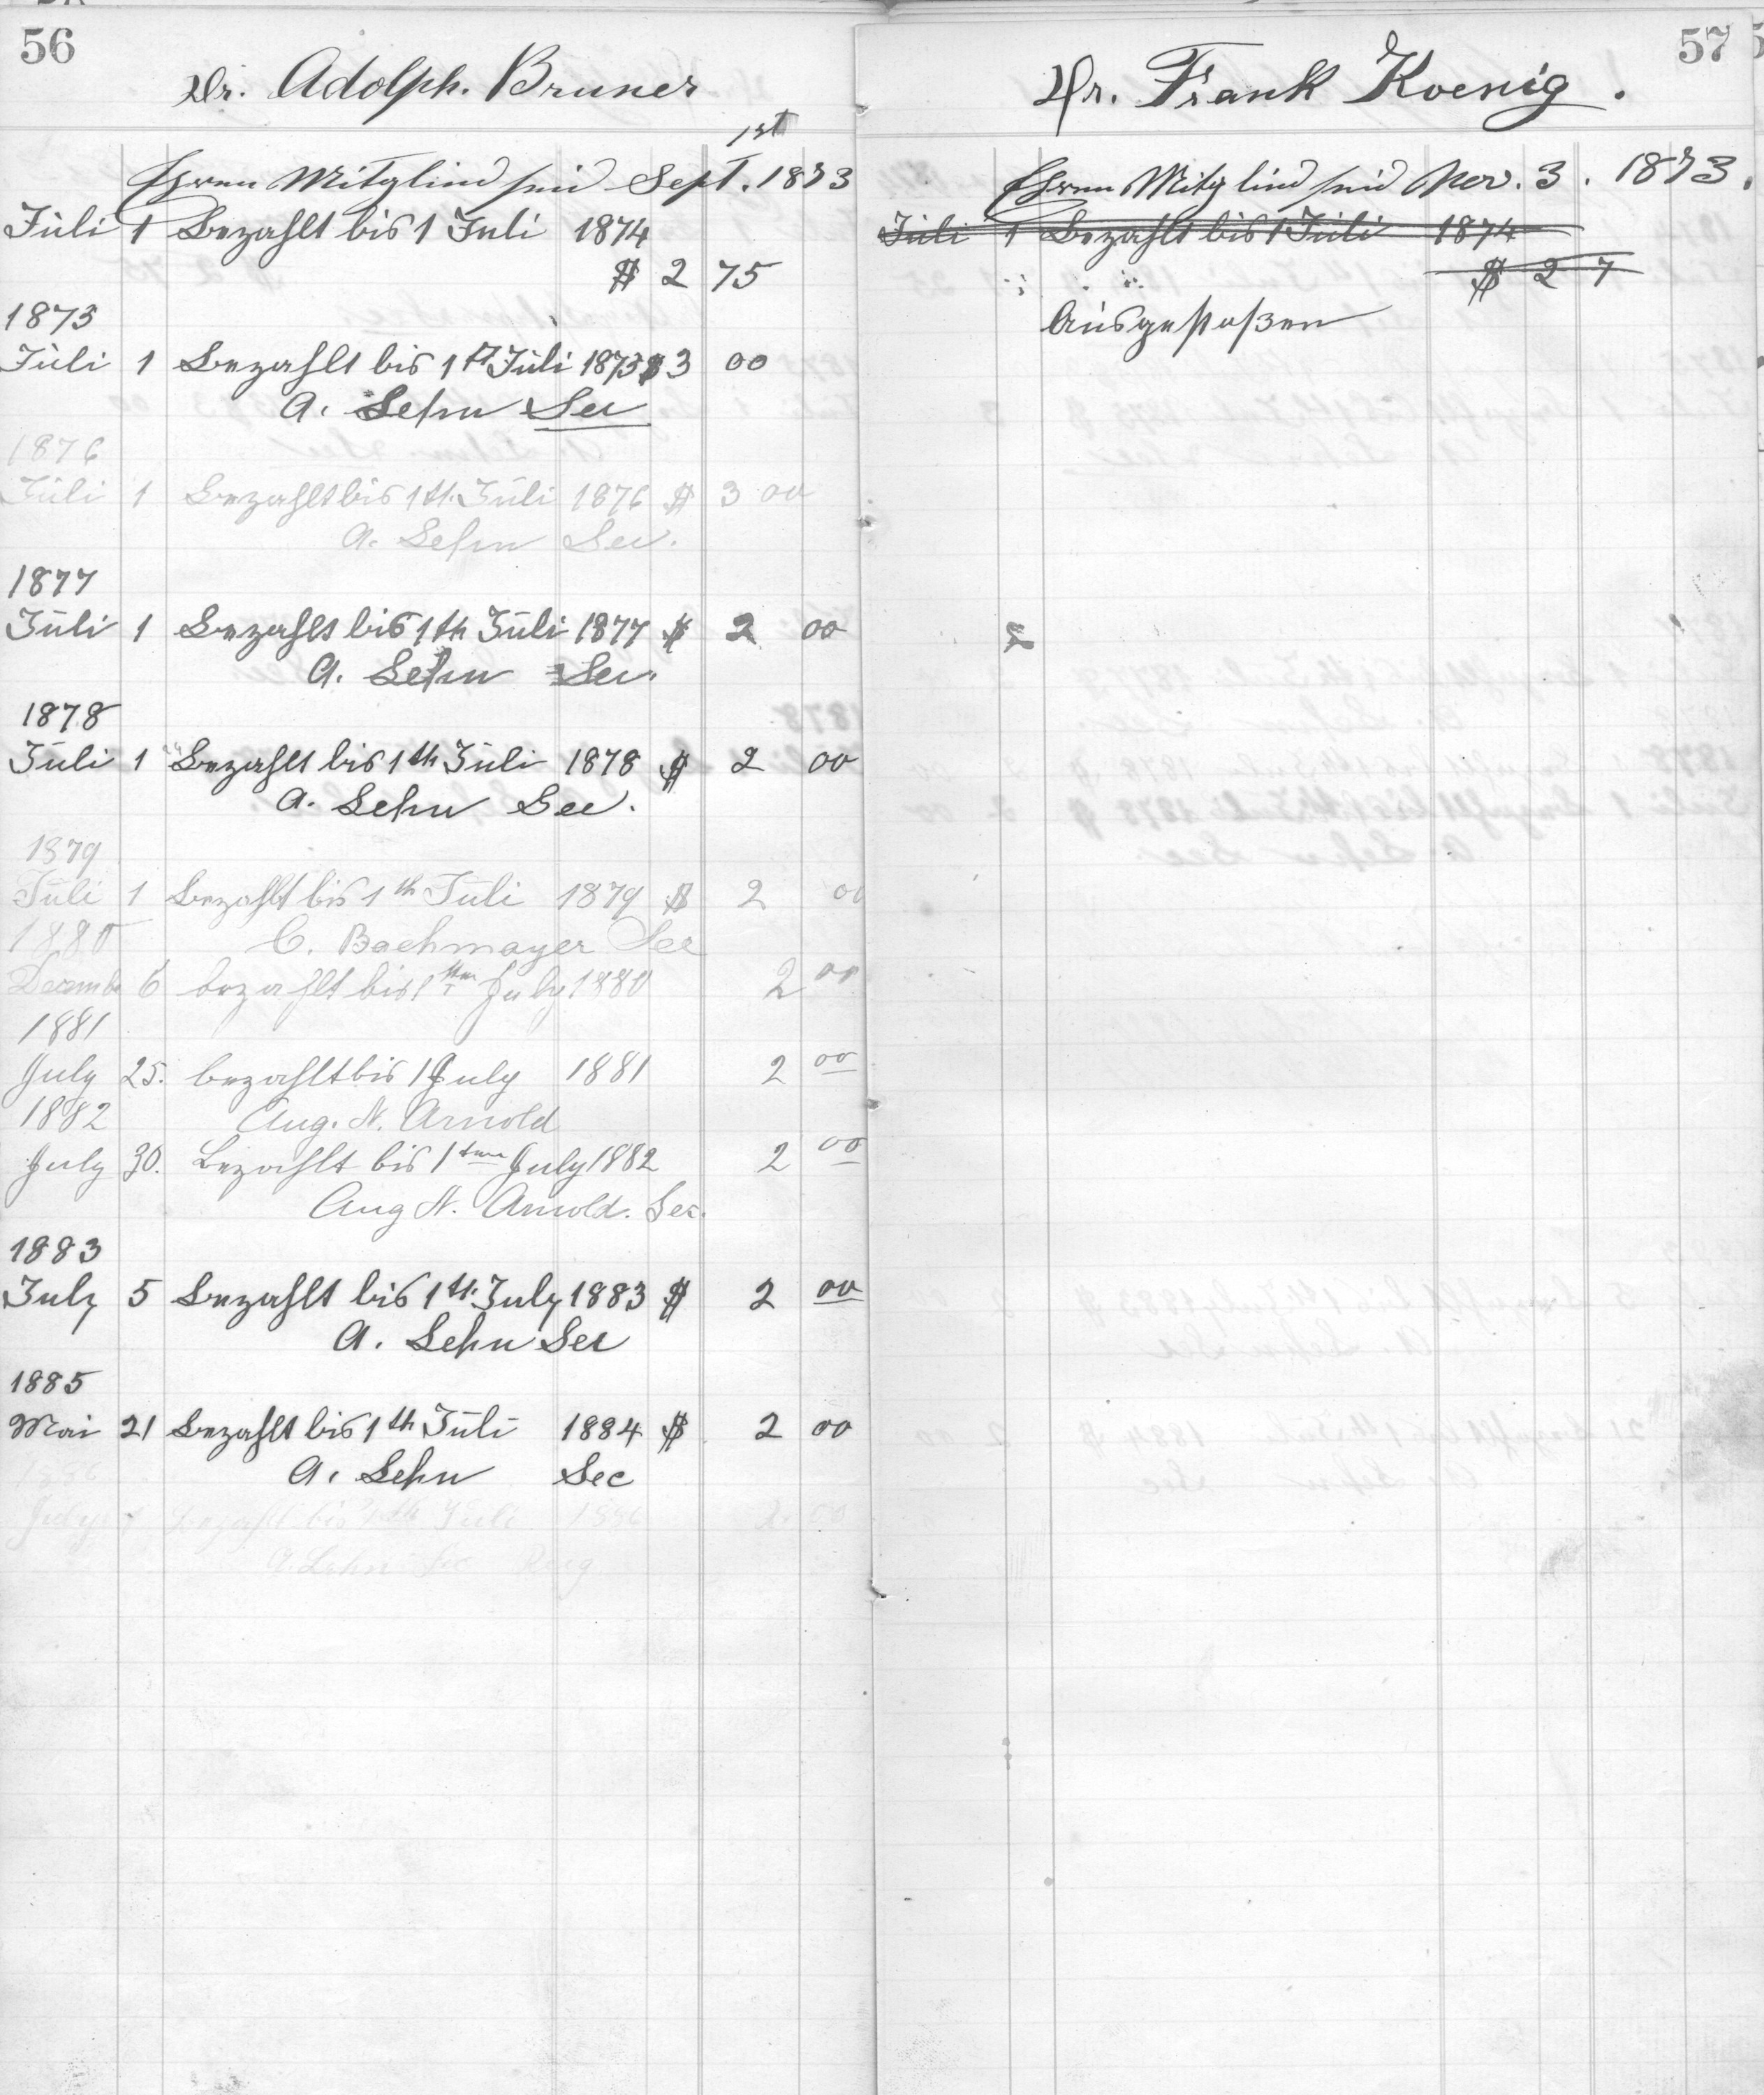 56
Dr. Adolph. Bruner
1st
Ehren Mitglied seid Sept. 1873
Juli 1 Bezahlt bis 1 Juli 1874
$ 2 75
1873
Juli 1 Bezahlt bis 1 st Juli 1873 $ 3 00
A. Lehn Sec
1876
Juli 1 Bezahlt bis 1 th. Juli 1876 $ 3 00
A. Lehn Sec.
1877
Juli 1 Bezahlt bis 1 th Juli 1877 $ 2 00
A. Lehn Sec.
1878
Juli 1 Bezahlt bis 1 th Juli 1878 $ 2 00
A. Lehn Sec.
1879
Juli 1 Bezahlt bis 1 th Juli 1879 $ 2 00
C. Bachmayer Sec
1880
Dezember 6 bezahlt bis 1 ten July 1880 2 00
1881
July 25. bezahlt bis 1 July 1881 2 00
Aug. N. Arnold
1882
July 30. Bezahlt bis 1 ten July 1882 2 00
Aug N. Arnold. Sec.
1883
July 5 Bezahlt bis 1 th. July 1883 $ 2 00
A. Lehn Sec
1885
Mai 21 Bezahlt bis 1 th Juli 1884 $ 2 00
A. Lehn Sec
1886
July Bezahlt bis 1 th Juli 1886 2. 00
A. Lehn Sec
57
Dr. Frank Koenig.
Ehren Mitglied seid Nov. 3. 1873.
Juli 1 Bezahlt bis 1 Juli 1874
$ 2 7
Ausgestoßen